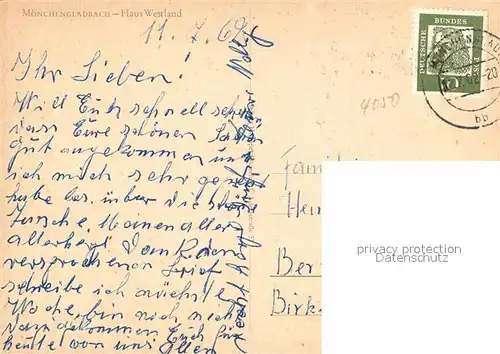 MÖNCHENGLADBACH – Haus Westland
11. 7. 62
Ihr Lieben!
Will Euch schnell schreiben,
dass Eure schönen Sachen
gut angekommen und
ich mich sehr gefreut
habe bes. über die schöne
Tasche. Meinen aller
allerherzl. Dank. Den
versprochenen Brief
schreibe ich nächste
Woche, bin noch nicht
dazu gekommen. Euch für
heute von uns Allen
recht
DEUTSCHE BUNDES
10
4050
Famili
Hei
Ber
Birk
bb
privacy protection
watermark